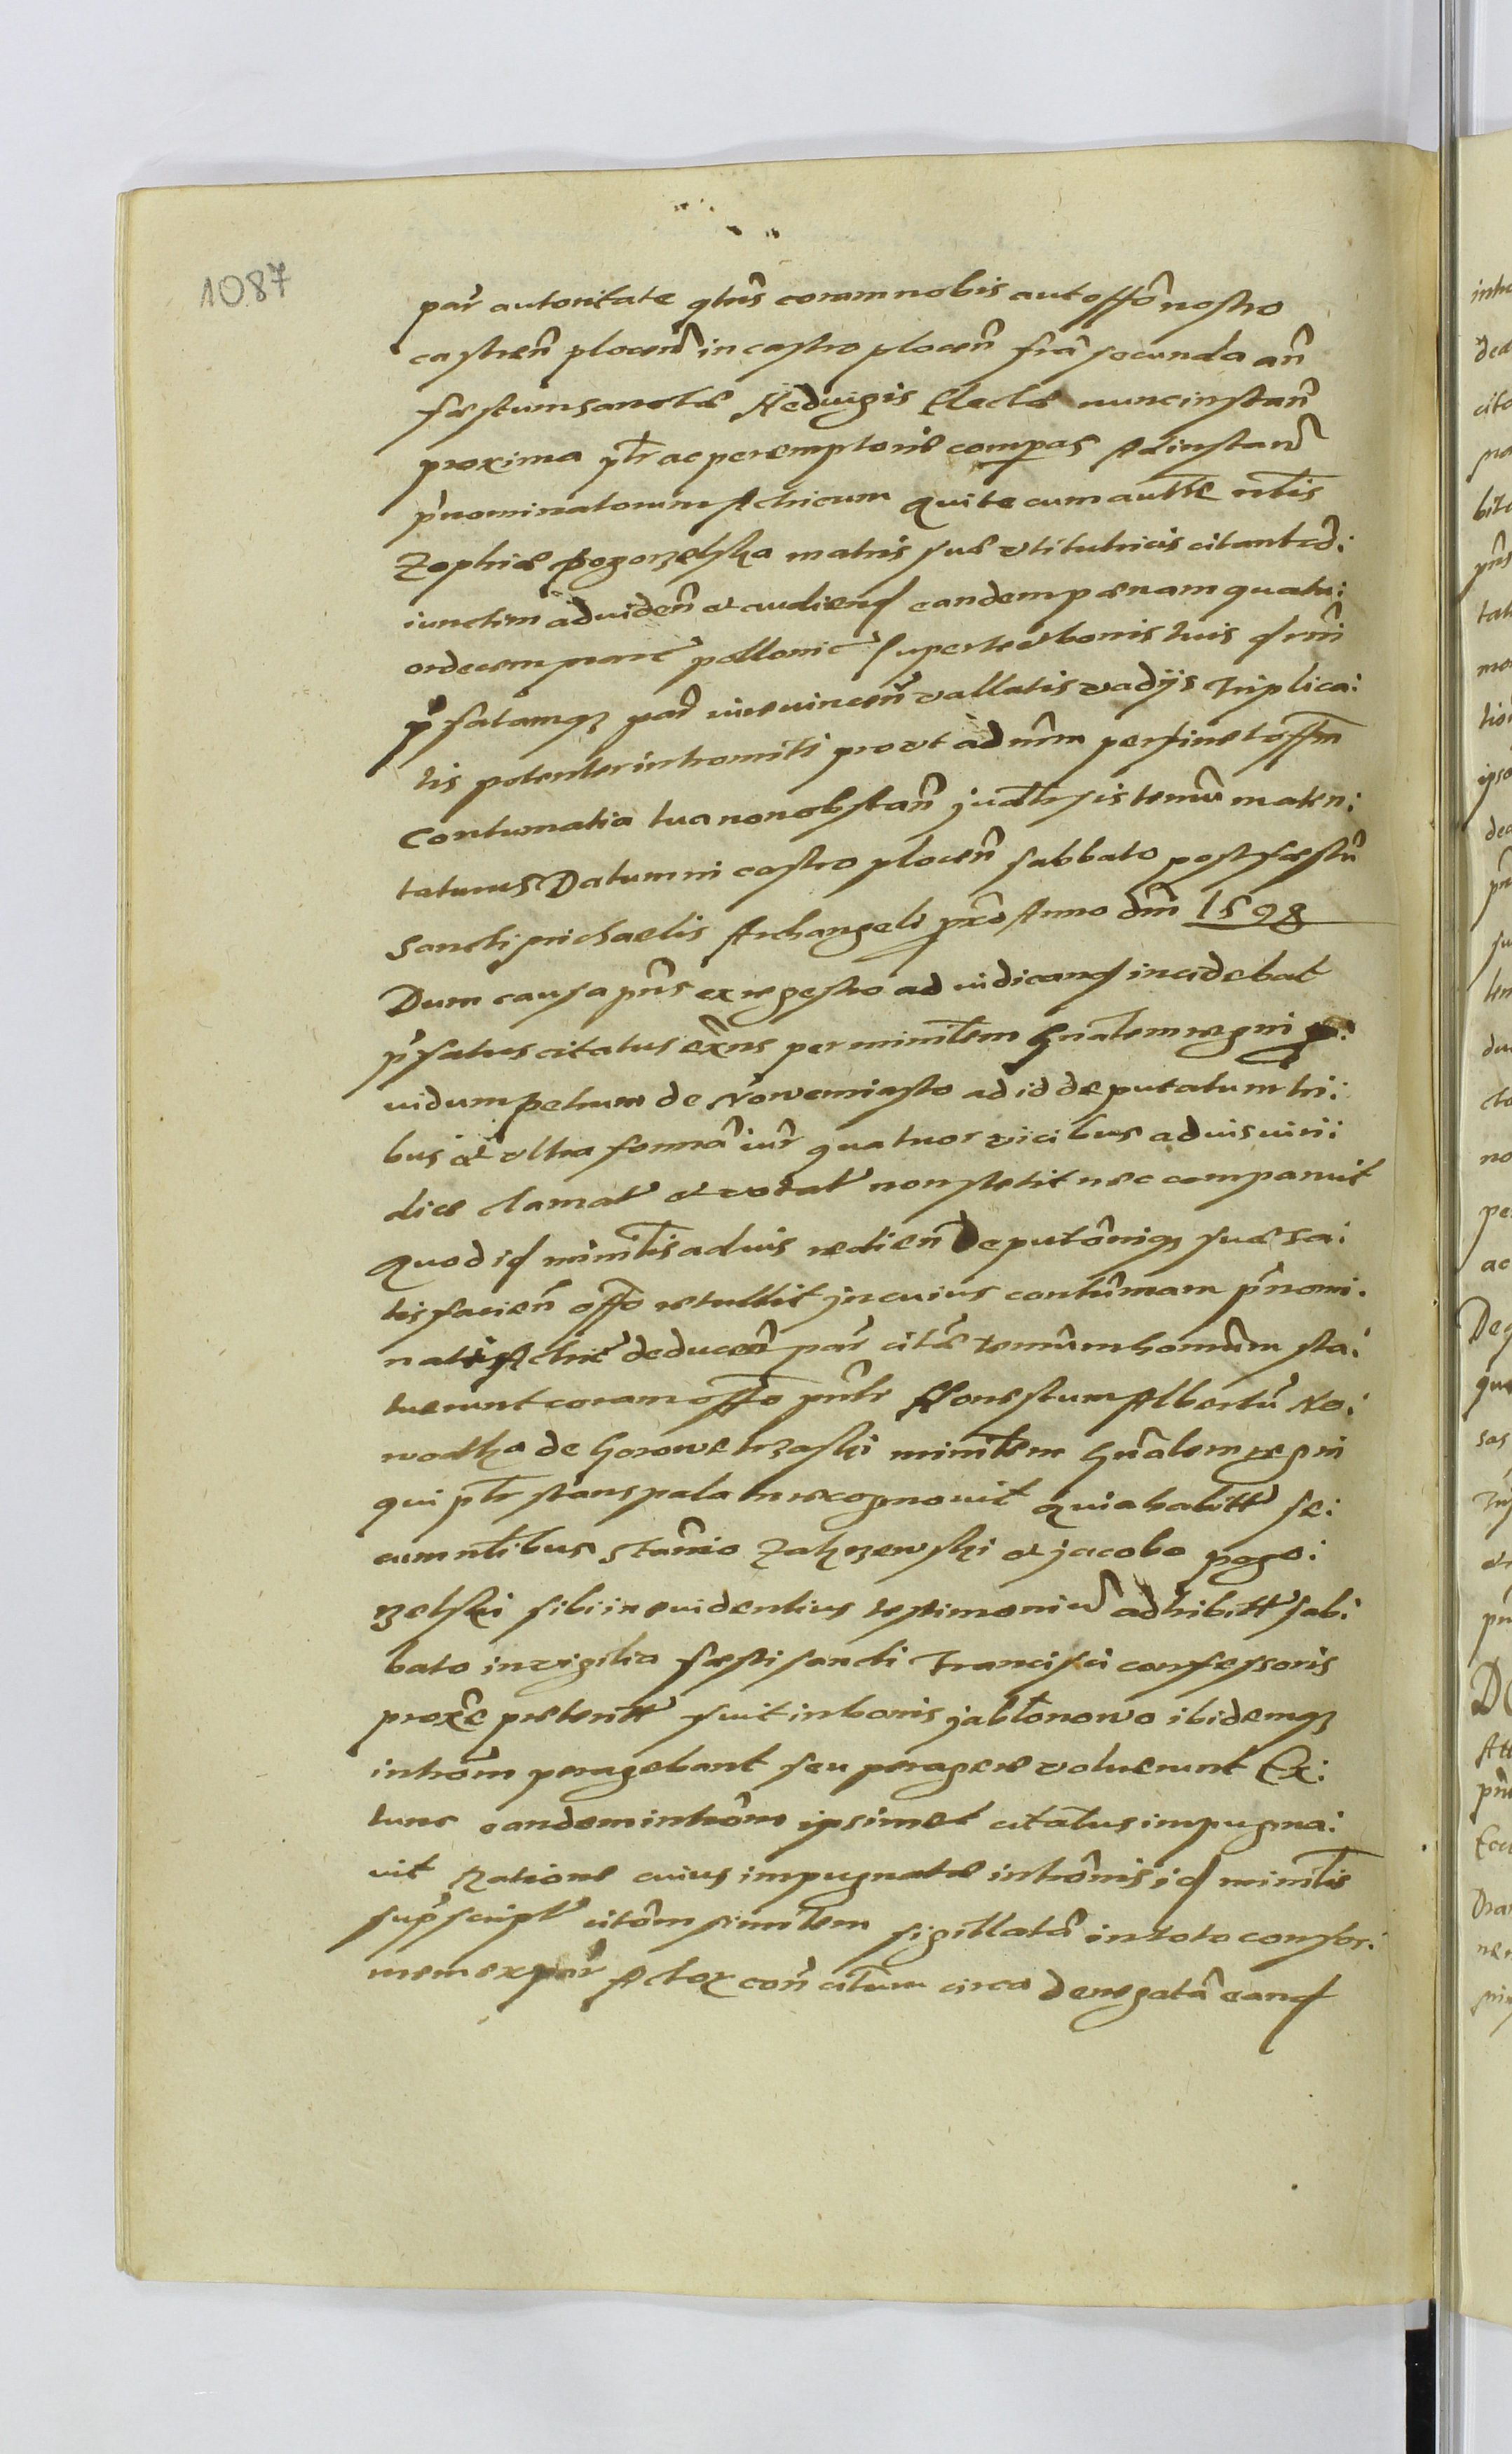 1087
par autoritate qtus coram nobis aut offo nostro
castren plocen in castro plocen fria secunda an
festum sanctæ Heduigis Electæ nunc instan
proxima ptr ac peremptorie compas Ad instan
pnominatorum Actricum qui te cum autte ntis
Zophiæ Pogorzelska matris suæ vti tutricis citant ed:
iunctim ad viden et audiend eandem pænam quatu:
ordecem marc pollonic super te et bonis tuis qd mri
pfatamqz par iure vincen vallatis vadijs triplica:
tis potenter intromitti prout ad nrm pertinet offm
Contumatia tua non obstan judtr sis termin atten:
taturus Datum in castro plocen sabbato post festu
Sancti Michaelis Archangeli pro Anno dni 1598
Dum causa pns ex regestro ad iudicand incidebat
pfatus citatus exns per minilem gnalem regni p:
uidum Petrum de Nowemiasto ad id deputatum tri:
bus et vltra forma iur quatuor vicibus ad uis viri:
dice clamat et vocat non stetit nec comparuit
Quod id minilis ad uis redien deputoniqz suæ sa:
tisfacien offo retullit in cuius contumam pnomi:
nati Actric deducen par citæ termin homum sta:
tuerunt coram offo pntr Honestum Albertu No:
wodka de Gorowe trzaski minilem gnalem regni
qui ptr stans palam recognouit quia habitt se:
cum ntibus Stanio Zakrzewski et Jacobo Pogo:
rzelski sibi in euidentius testimoniu adhibitt sab:
bato in vigilia festi sancti Francisci confessoris
proxe preteritt fuit in bonis Jablonowo ibidemqz
introm peragebant seu peragere voluerunt Ex:
tunc eandem introm ipsimet citatus impugna:
uit Ratione cuius impugnatæ intromis id minilis
supscript citom similem sigillata in toto confor:
mem ex par Actor con citum circa denegata eand